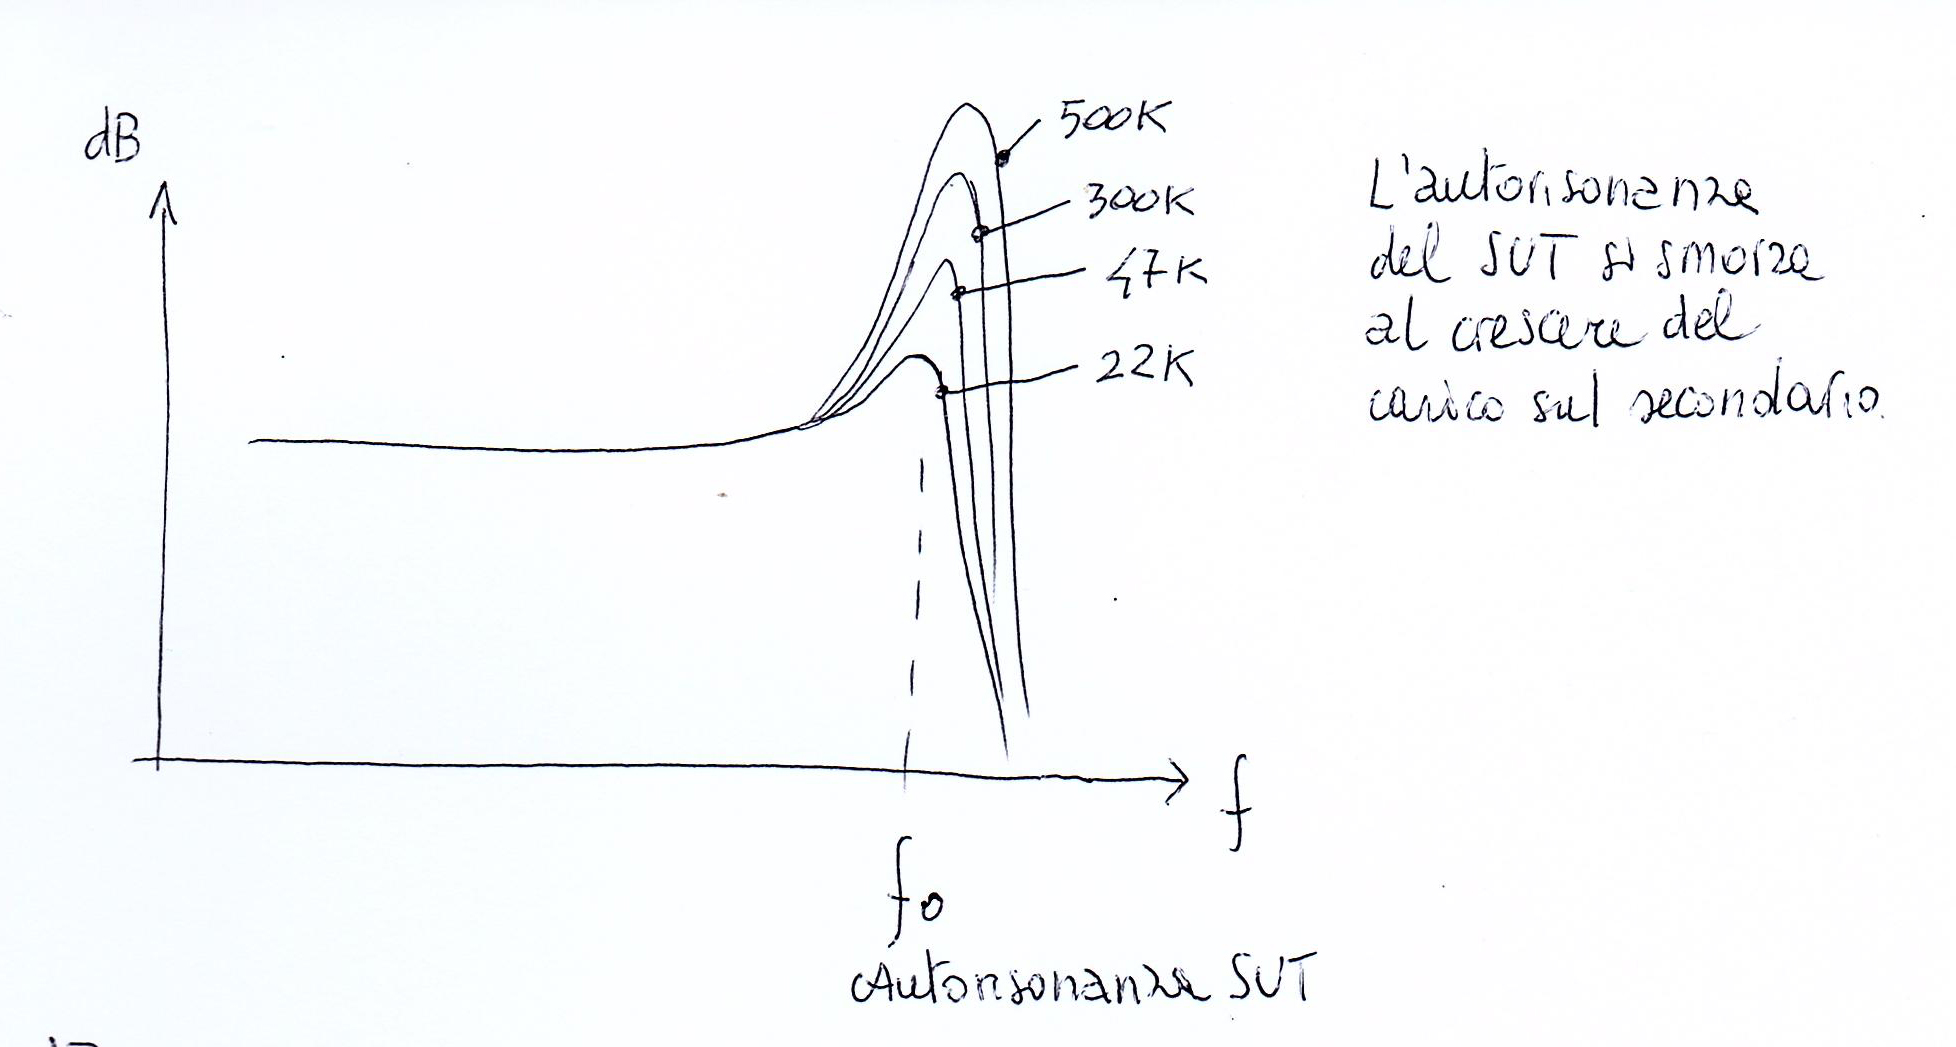 dB
500K
300K
47K
22K
L'autorisonanza
del SUT si smorza
al crescere del
carico sul secondario.
f
fo
Autorisonanza SUT